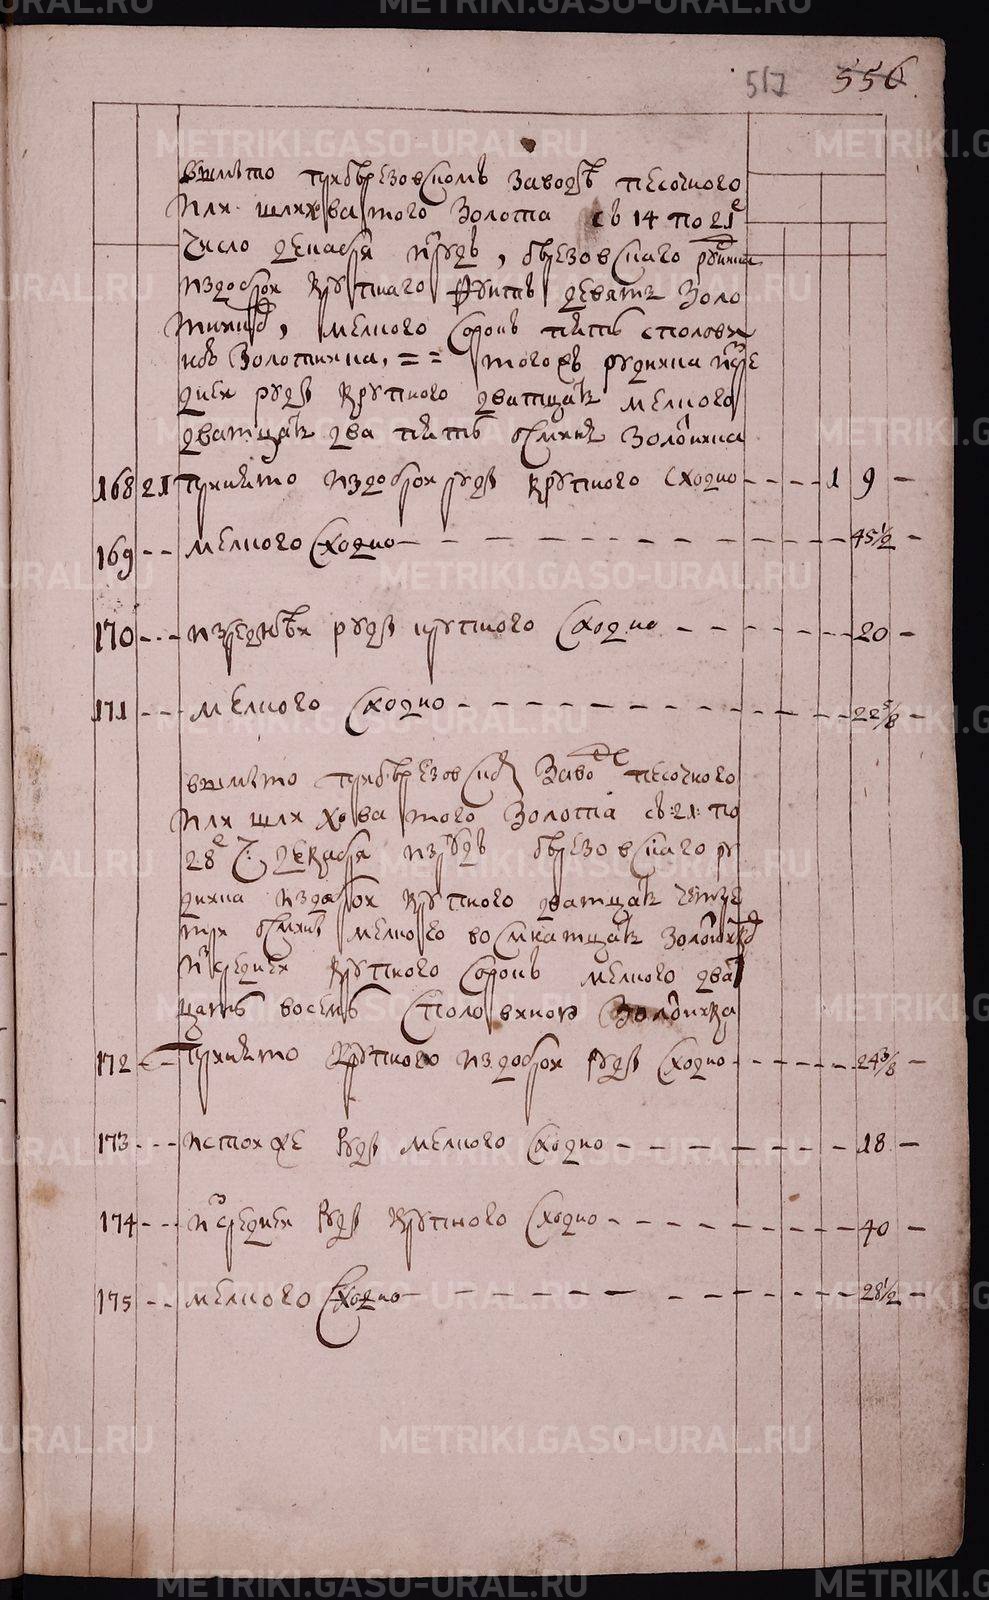 517 556
вымыто прибѣрезовскомъ заводѣ песочного
или шлиховатого золота съ 14 по 21е
число декабря изрудъ, бѣрезовскаго рудника
издоброи крупнаго фунтъ девять золо
тниковъ, мелкого сорокъ пять сполови
ною золотника, = = тогожъ рудника исре
днеи руды крупного дватцать мелкого
дватцать два пять осмихъ золотника
168 21 принято издоброи руды крупного сходно - - - - 1 9 -
169 - - мелкого сходно - - - - 45 1/2 -
170 - - - изсреднѣи руды крупного сходно - - - - 20 -
171 - - - мелкого сходно - - - - 22 5/8 -
вымыто прибѣрезовскомъ заводе песочного
или шлиховатого золота съ :21: по
28е ч: декабря изрудъ бѣрезовскаго ру
дника издоброи крупного дватцать четыре
три осмихъ мелкого восмнатцать золотниковъ
исреднеи крупного сорокъ мелкого двat
цать восемь сполов​иною золотника
172 - принято крупного издоброи руды сходно - - - - 24 3/8 -
173 - - - истои же руды мелкого сходно - - - - 18 -
174 - - - исреднеи руды крупного сходно - - - - 40 -
175 - - мелкого сходно - - - - 28 1/2 -
METRIKI.GASO-URAL.RU